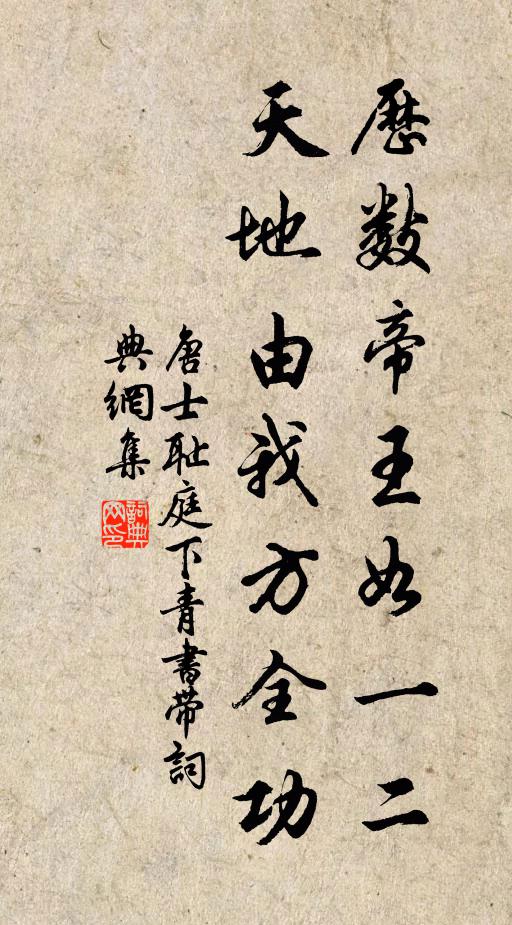 歷數帝王如一二
天地由我方全功
唐士耻庭下青書帶詞
典網集
詞典
網印